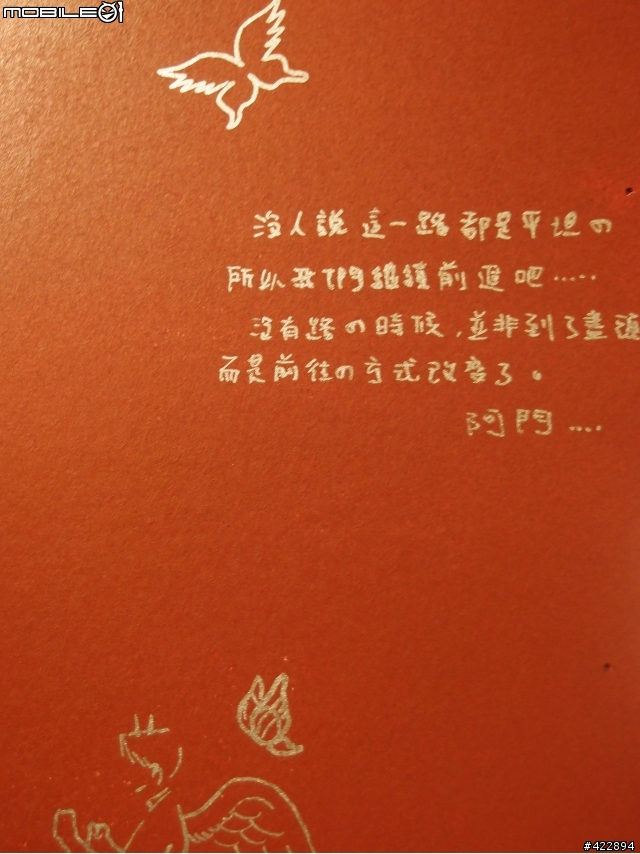 MOBILE01
沒人說這一路都是平坦の
所以我們繼續前進吧.....
沒有路の時候，並非到了盡頭
而是前往の方式改變了。
阿門....
#422894